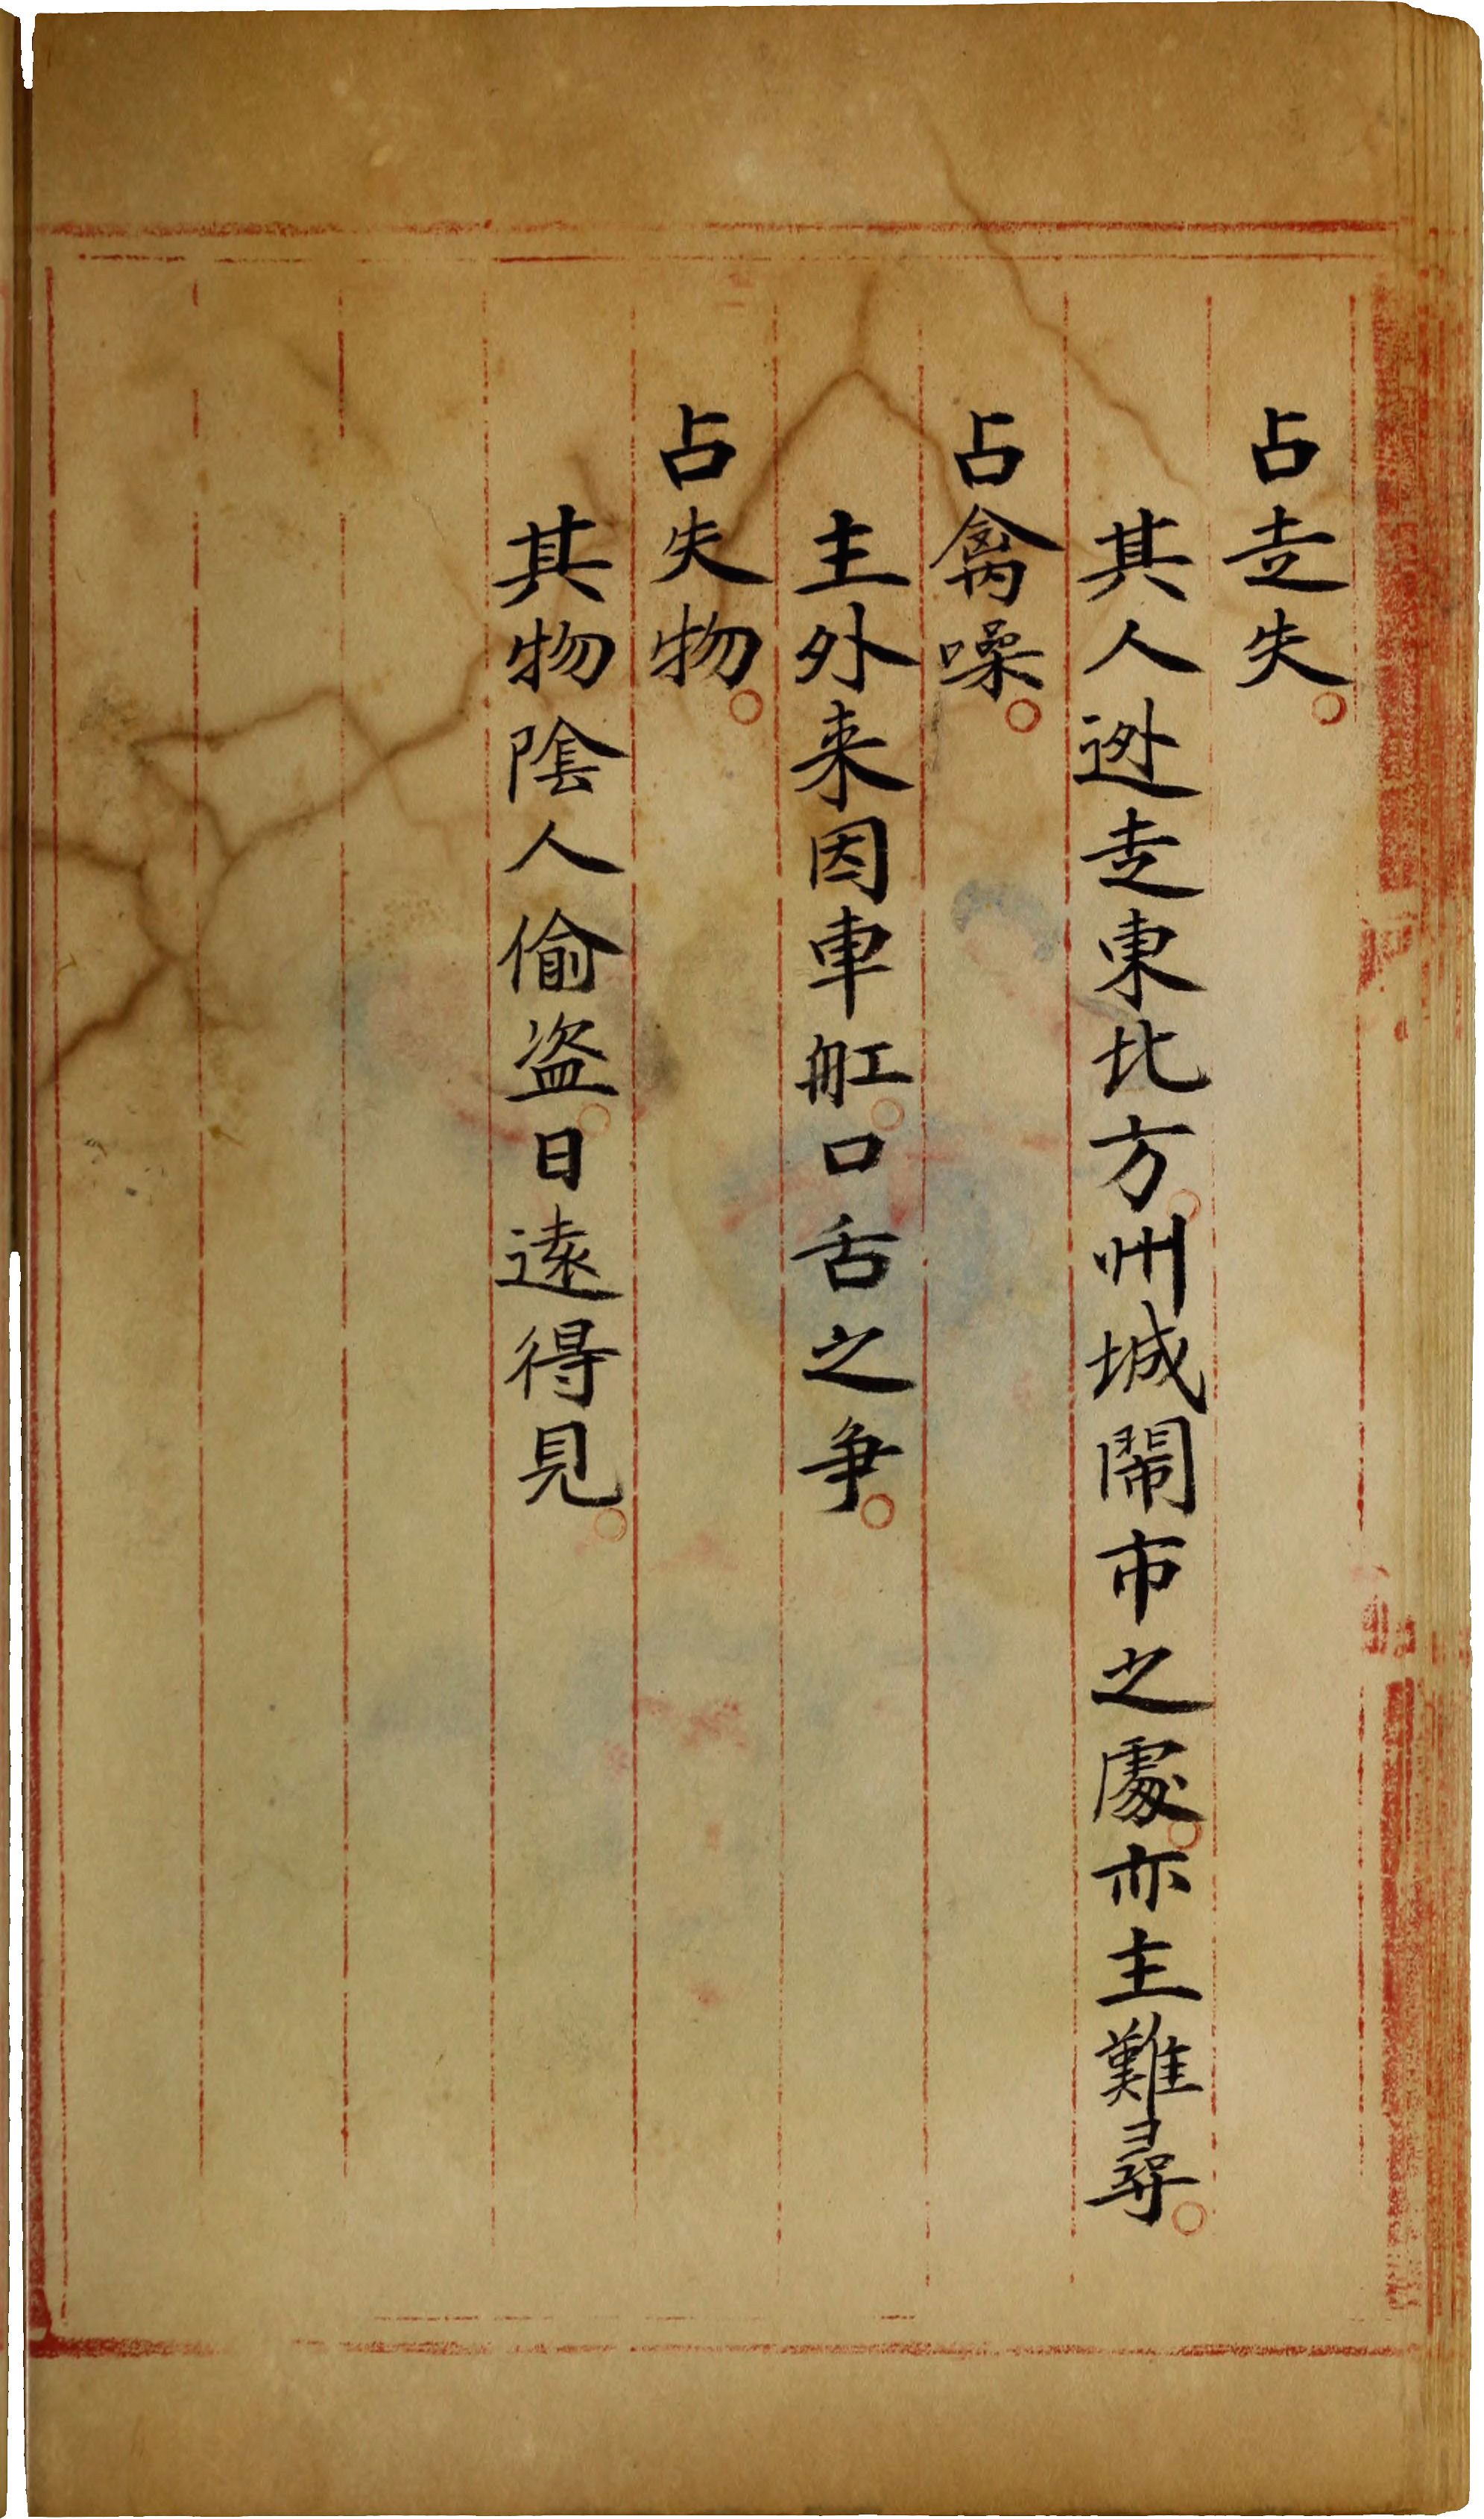 占走失。
其人迯走東北方。州城閙市之處。亦主難尋。
占禽噪。
主外来因車舡。口舌之爭。
占失物。
其物陰人偷盗。日遠得見。